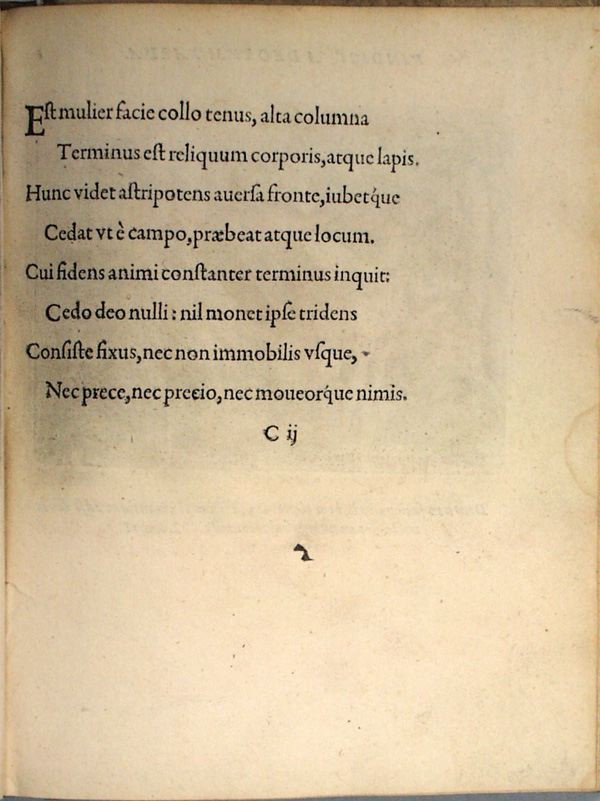 Est mulier facie collo tenus, alta columna
Terminus est reliquum corporis, atque lapis.
Hunc videt astripotens auersa fronte, iubetq́ue
Cedat vt è campo, præbeat atque locum.
Cui fidens animi constanter terminus inquit:
Cedo deo nulli: nil monet ipse tridens
Consiste fixus, nec non immobilis vsque,
Nec prece, nec precio, nec moueorq́ue nimis.
C ij